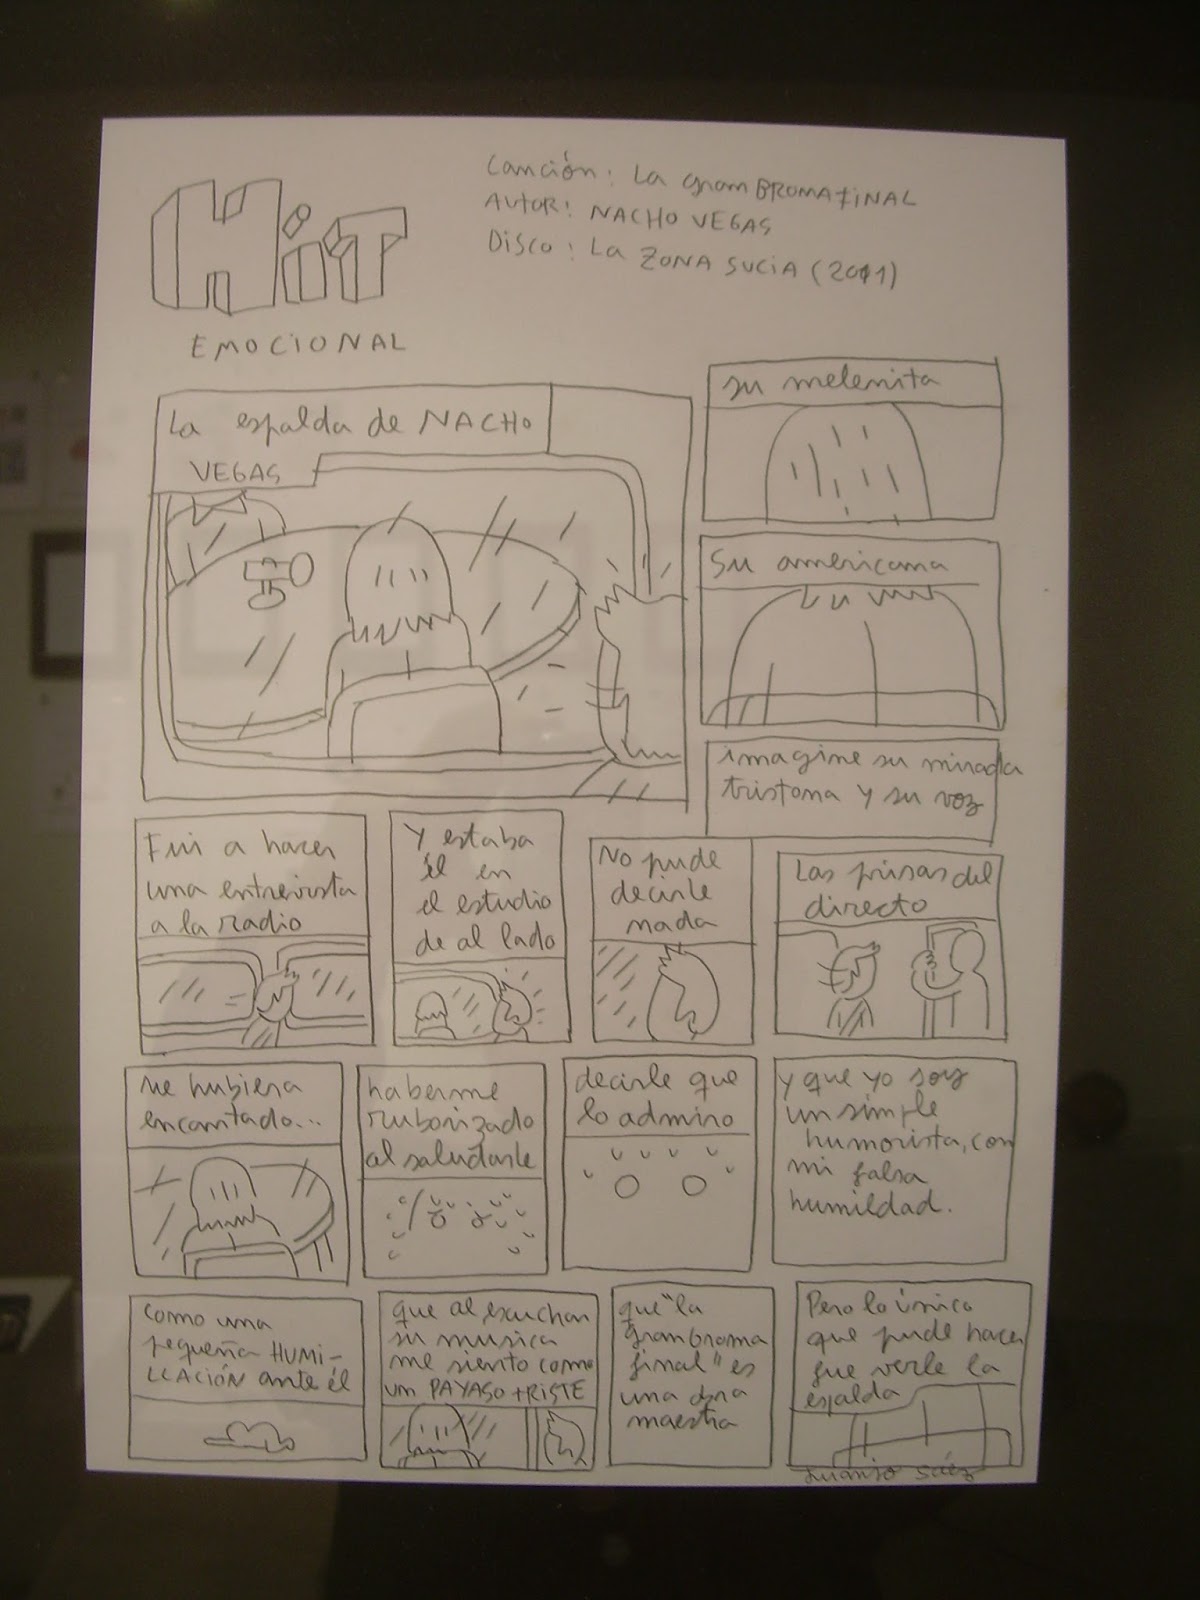 HiT
EMOCIONAL
Canción: La gran BROMA FiNAL
AUTOR: NACHO VEGAS
Disco: La ZONA SUCiA (2011)
La espalda de NACHO
VEGAS
su melenita
Su americana
imagine su mirada
tristona y su voz
Fui a hacer
una entrevista
a la radio
Y estaba
él en
el estudio
de al lado
No pude
decirle
nada
Las prisas del
directo
me hubiera
encantado...
haberme
ruborizado
al saludarle
decirle que
lo admiro
y que yo soy
un simple
humorista, con
mi falsa
humildad.
como una
pequeña HUMi-
LLACIÓN ante él
que al escuchar
su musica
me siento como
un PAYASO tRiSTE
que "la
gran broma
final" es
una obra
maestra
Pero lo único
que pude hacer
fue verle la
espalda
Juanjo Sáez